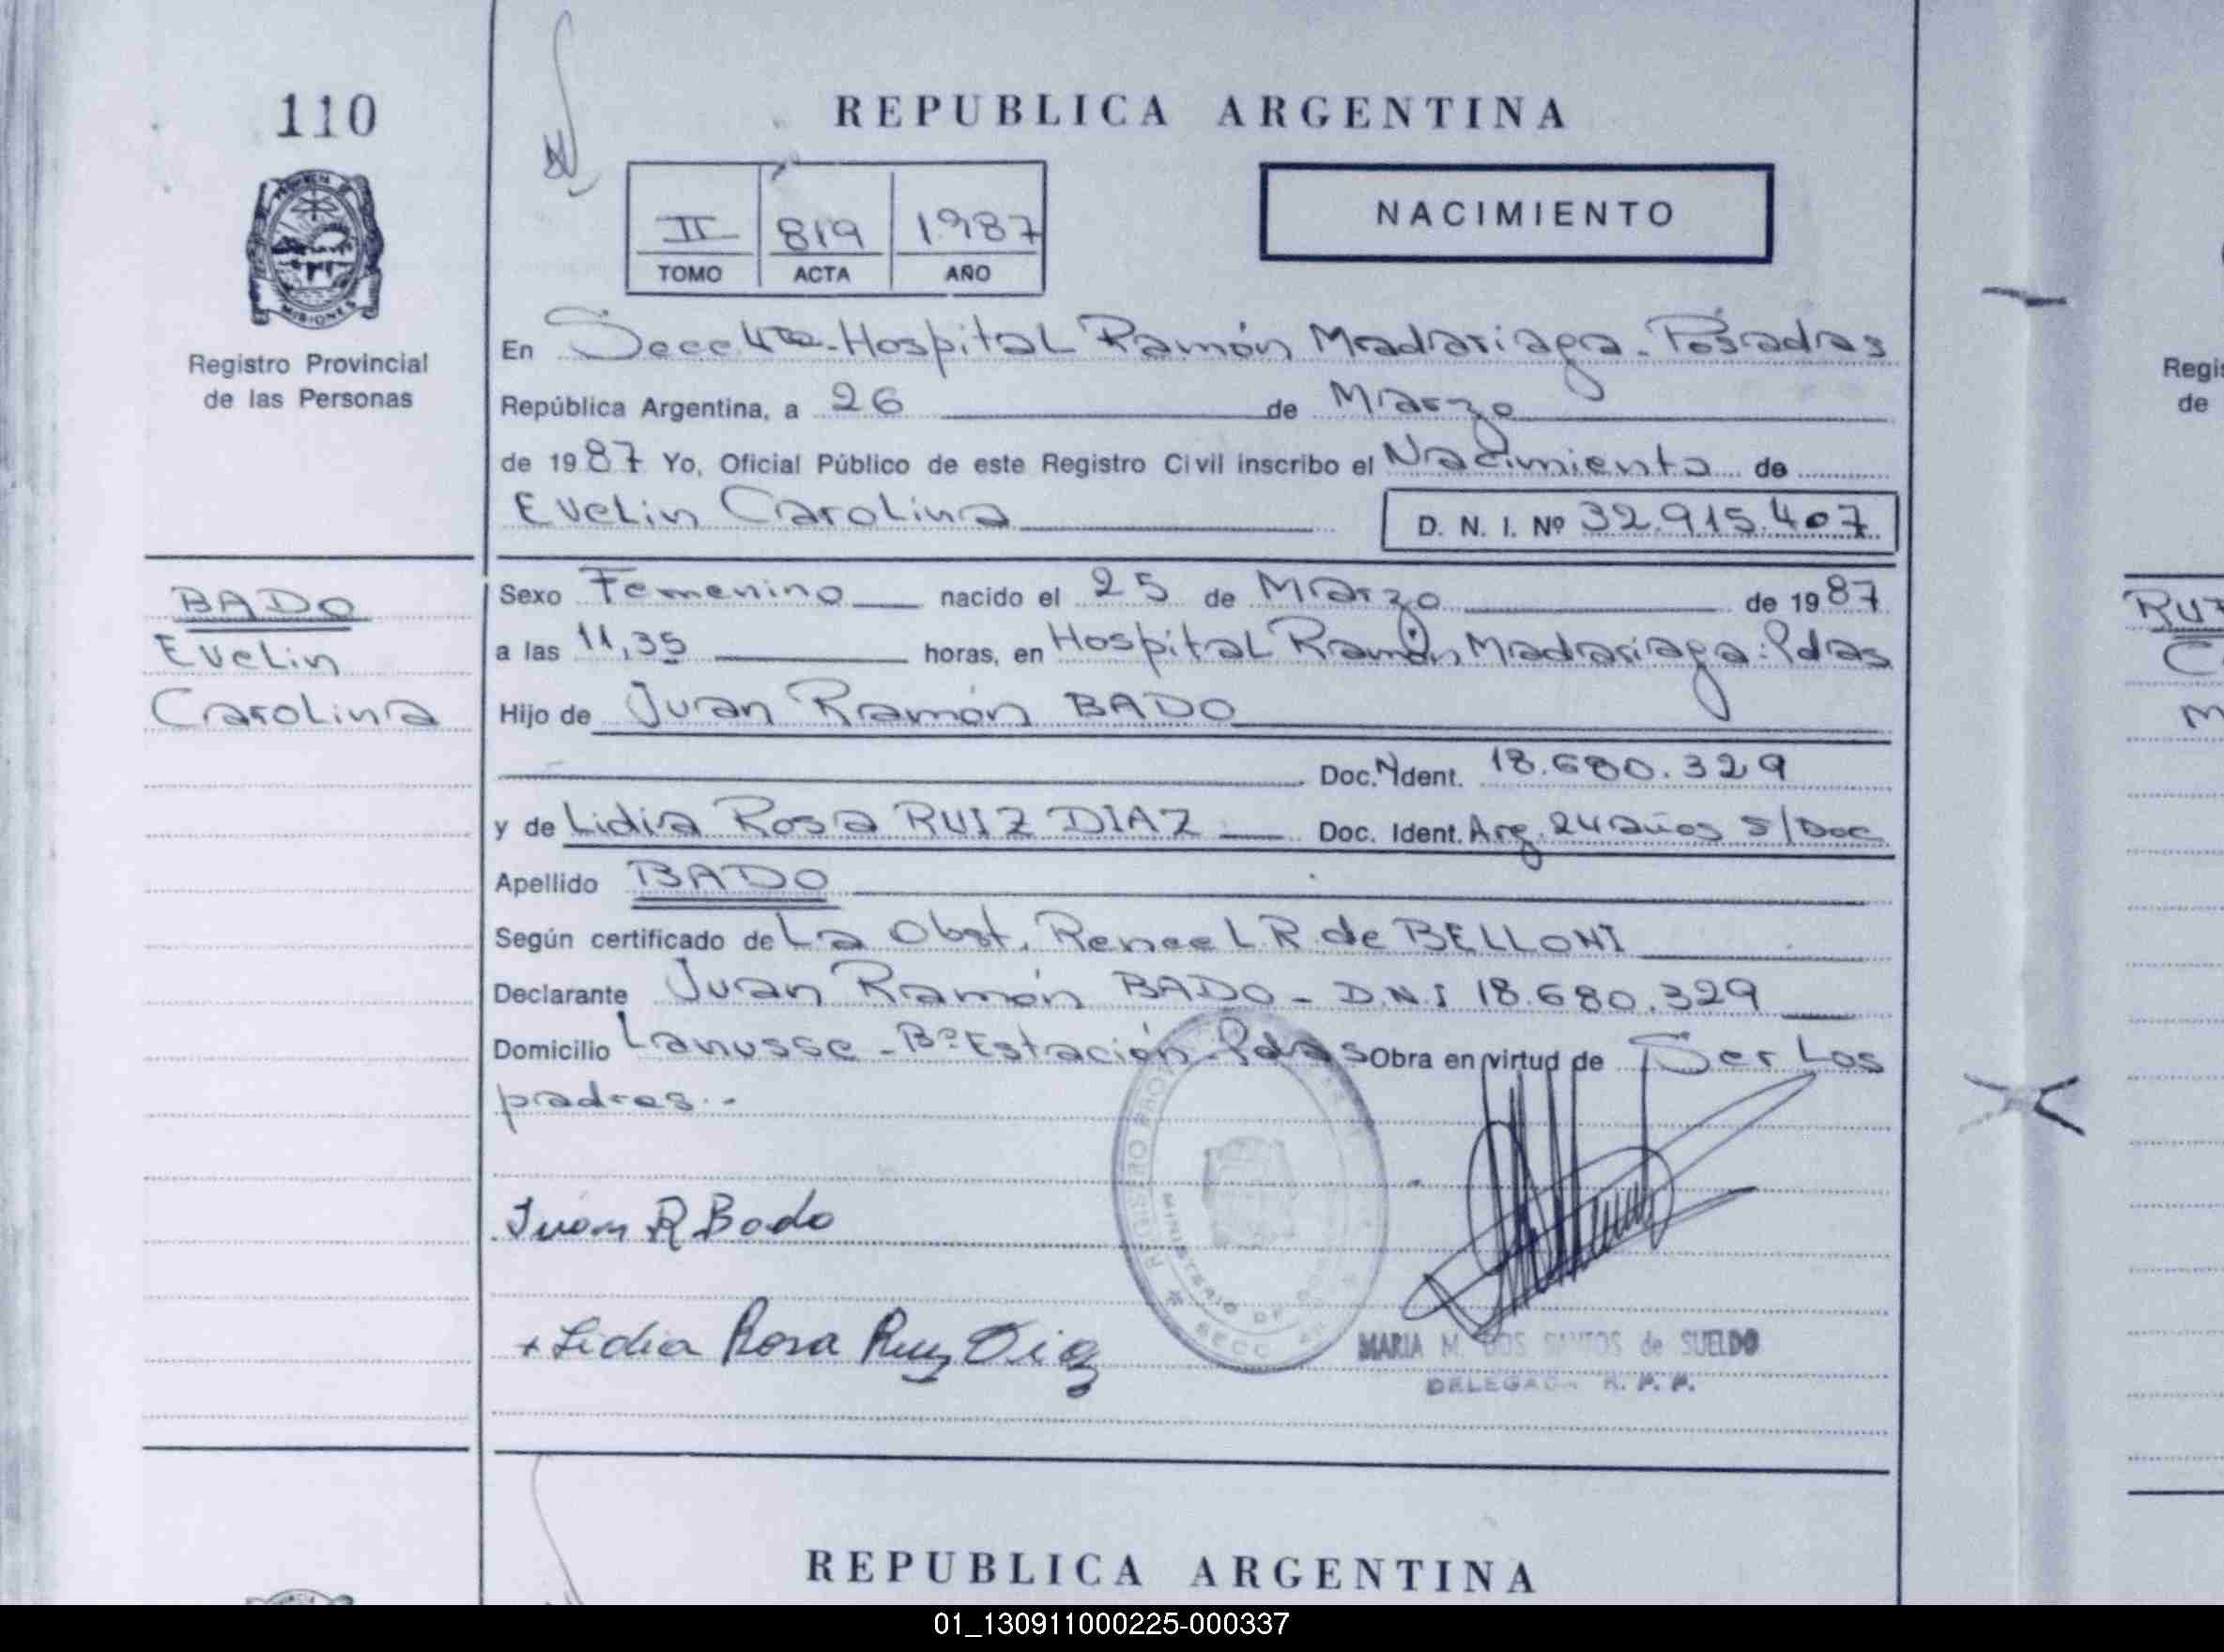 110
REPUBLICA ARGENTINA
II 819 1987
TOMO ACTA AÑO
NACIMIENTO
PROVINCIA DE
MISIONES
Registro Provincial
de las Personas
En Secc 4ta - Hospital Ramón Madariaga - Posadas
República Argentina, a 26 de Marzo
de 1987 Yo, Oficial Público de este Registro Civil inscribo el Nacimiento de
Evelin Carolina
D. N. I. Nº 32.915.407
BADO
Evelin
Carolina
Sexo Femenino nacido el 25 de Marzo de 1987
a las 11,35 horas, en Hospital Ramón Madariaga. Pdas
Hijo de Juan Ramón BADO
Doc. Ident. 18.680.329
y de Lidia Rosa RUIZ DIAZ Doc. Ident. Arg. 24 años s/Doc
Apellido BADO
Según certificado de La Obst. Renee L. R. de BELLONI
Declarante Juan Ramón BADO - D.N.I 18.680.329
Domicilio Lanusse - Bº Estación - Pdas Obra en virtud de Ser Los
padres.-
Juan R Bado
+ Lidia Rosa Ruiz Diaz
REGISTRO PROV
MINISTERIO DE GOB
SECC 4ª
MARIA M. DOS SANTOS de SUELDO
DELEGADA R. P. P.
REPUBLICA ARGENTINA
Regis
de
RUI
C
M
01_130911000225-000337